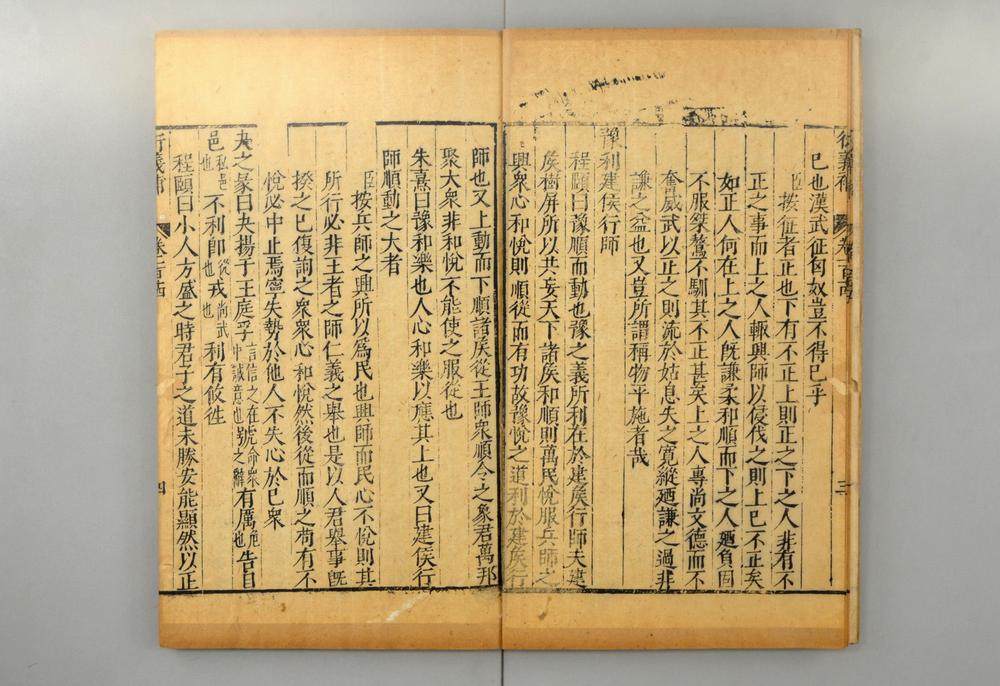 已也漢武征匈奴豈不得已乎
臣按征者正也下有不正上則正之下之人非有不
正之事而上之人輙興師以侵伐之則上已不正矣
如正人何在上之人旣謙柔和順而下之人廼負固
不服桀驁不馴其不正甚矣上之人專尚文德而不
奮威武以正之則流於姑息失之寛縱廼謙之過非
謙之益也又豈所謂稱物平施者哉
豫利建侯行師
程頤曰豫順而動也豫之義所利在於建矦行師夫建
矦樹屏所以共安天下諸矦和順則萬民悅服兵師之
興衆心和悅則順從而有功故豫悅之道利於建矦行
師也又上動而下順諸矦從王師衆順令之象君萬邦
聚大衆非和悅不能使之服從也
朱熹曰豫和樂也人心和樂以應其上也又曰建侯行
師順動之大者
臣按兵師之興所以爲民也興師而民心不悅則其
所行必非王者之師仁義之舉也是以人君舉事旣
揆之已復詢之衆衆心和悅然後從而順之苟有不
悅必中止焉寧失勢於他人不失心於已衆
夬之彖曰夬揚于王庭孚言信之在中誠意也號命衆之辭有厲危也告自
邑私邑也不利卽從也戎尚武也利有攸徃
程頤曰小人方盛之時君子之道未勝安能顯然以正
衍義補 四